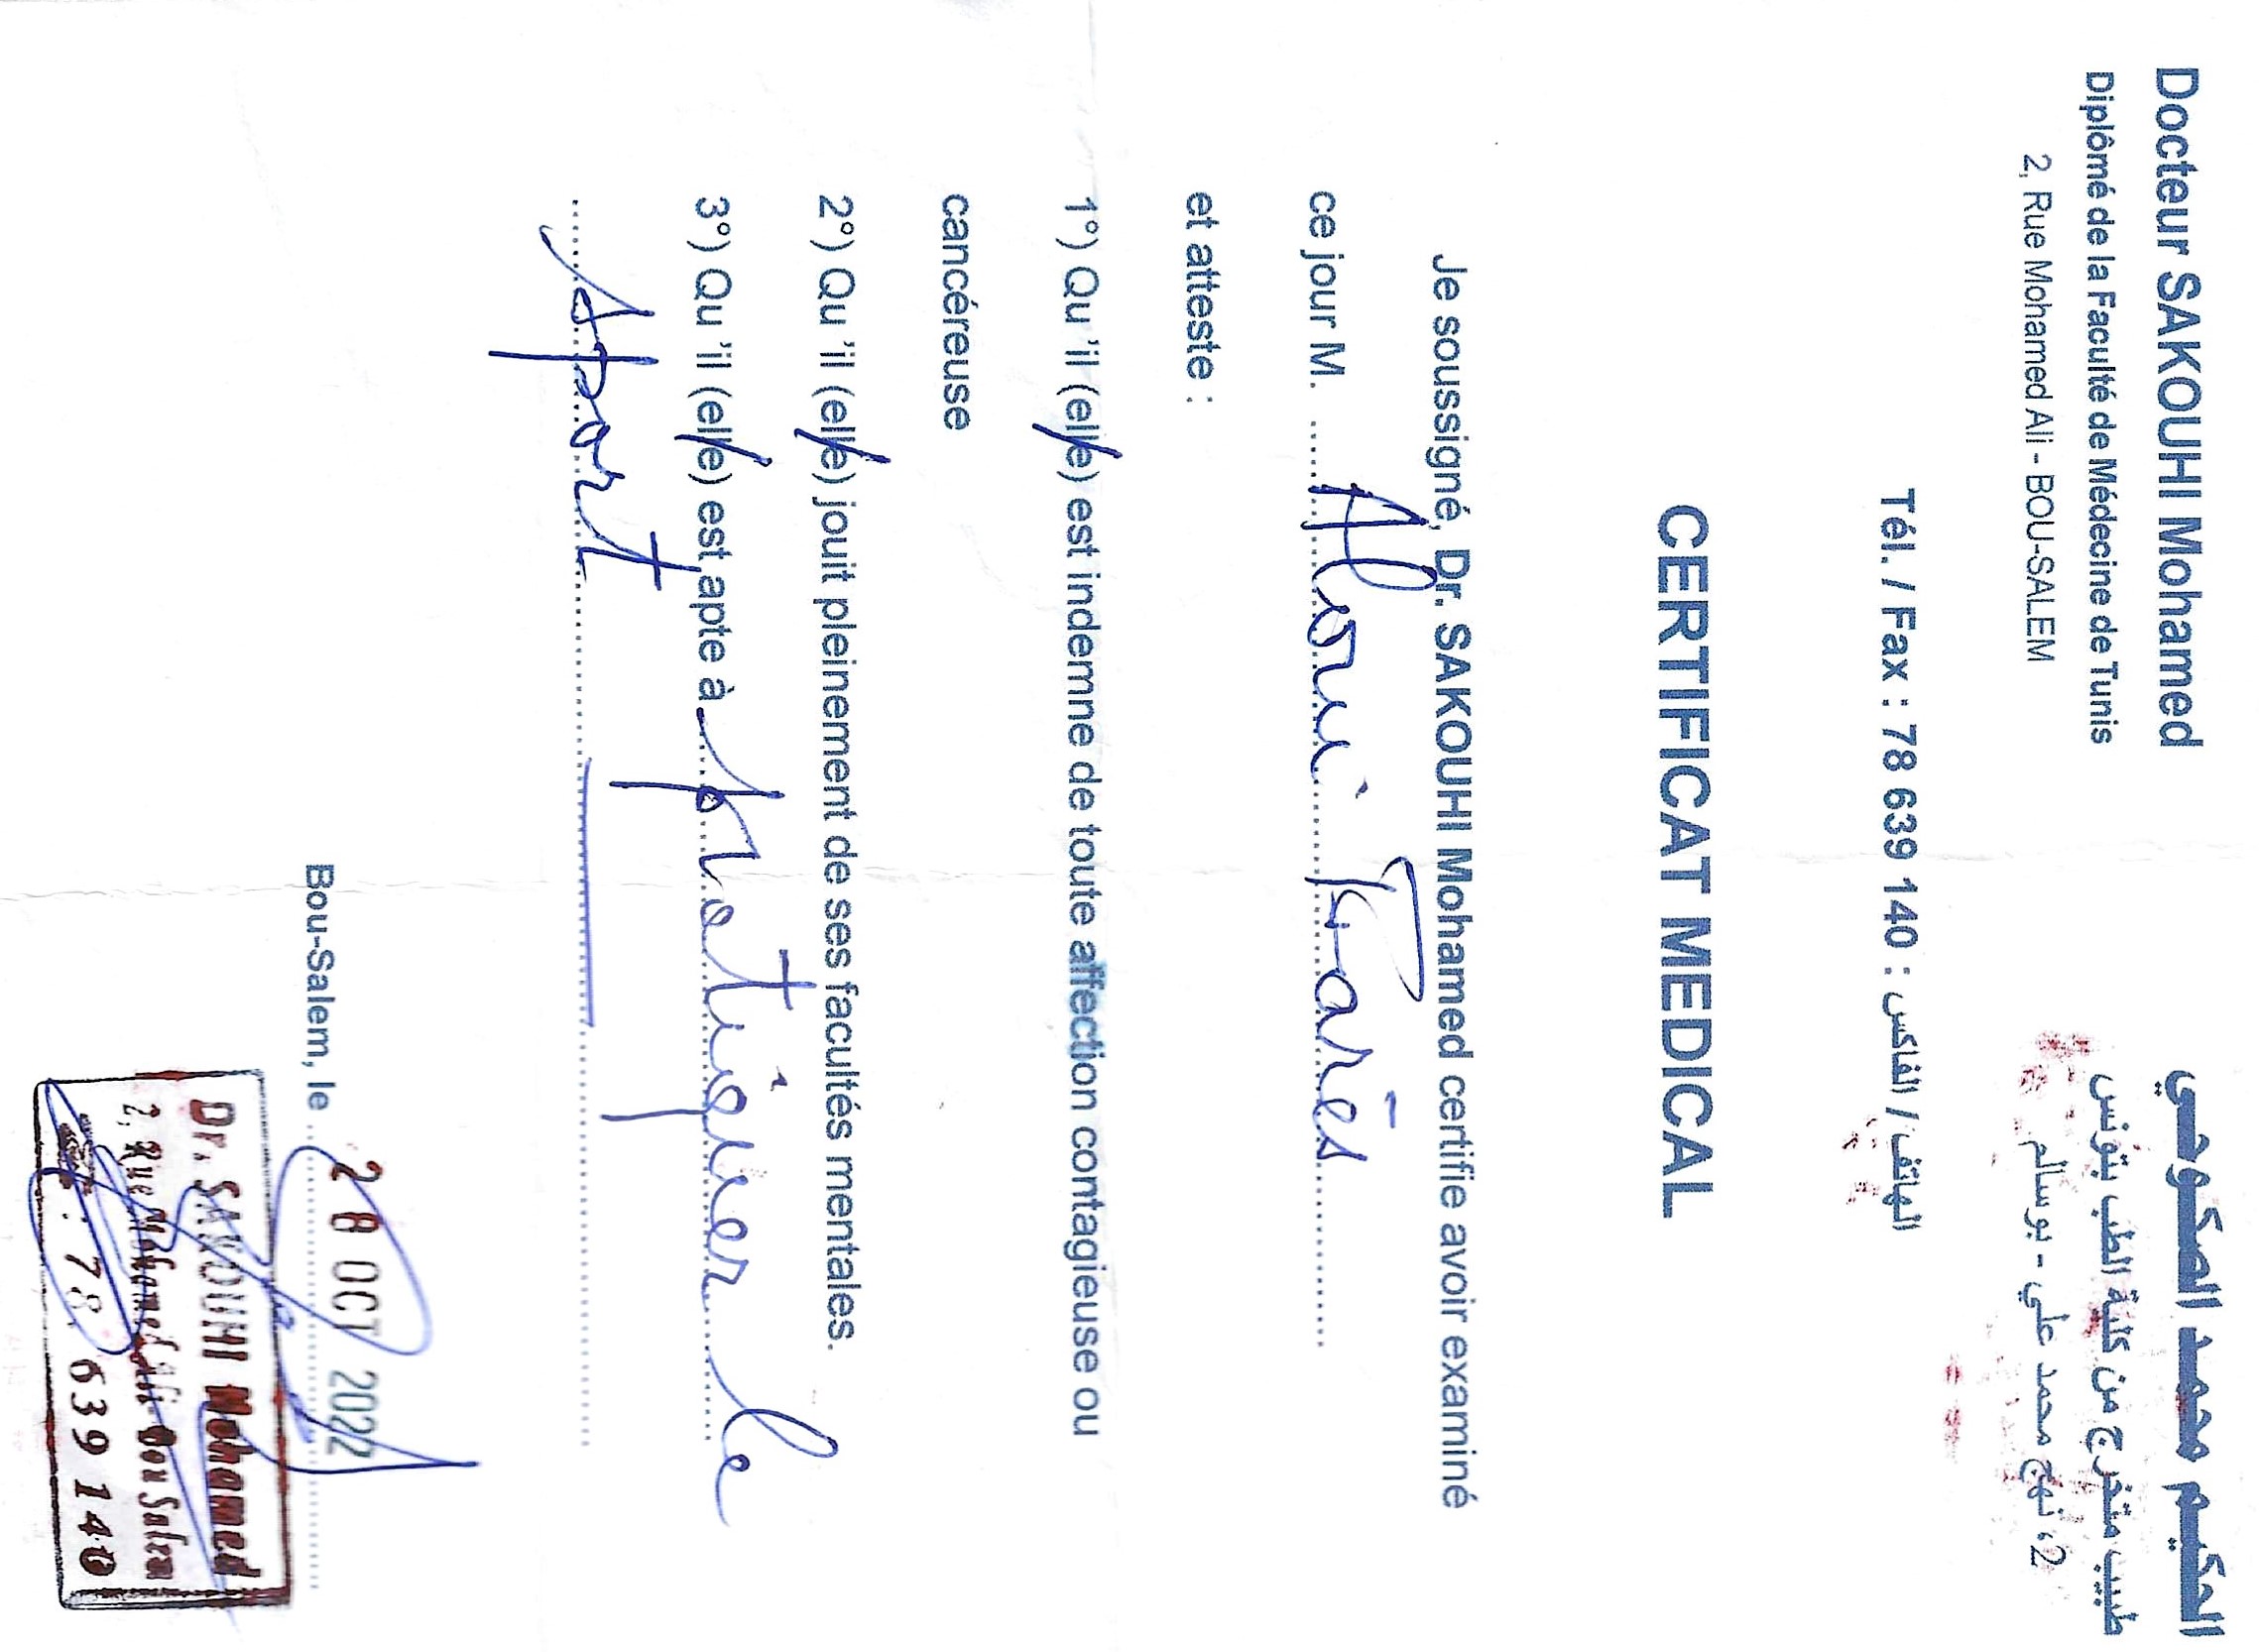 Docteur SAKOUHI Mohamed
Diplômé de la Faculté de Médecine de Tunis
2, Rue Mohamed Ali - BOU-SALEM
الحكيم محمد الصكوحي
طبيب متخرج من كلية الطب بتونس
2، نهج محمد علي - بوسالم
Tél. / Fax : 78 639 140 : الهاتف / الفاكس
CERTIFICAT MEDICAL
Je soussigné, Dr. SAKOUHI Mohamed certifie avoir examiné
ce jour M. Aloui Farès
et atteste :
1°) Qu 'il (elle) est indemne de toute affection contagieuse ou
cancéreuse
2°) Qu 'il (elle) jouit pleinement de ses facultés mentales.
3°) Qu 'il (elle) est apte à pratiquer le
sport
Bou-Salem, le 28 OCT 2022
Dr. SAKOUHI Mohamed
2, Rue Mohamed Ali Bou Salem
: 78 639 140